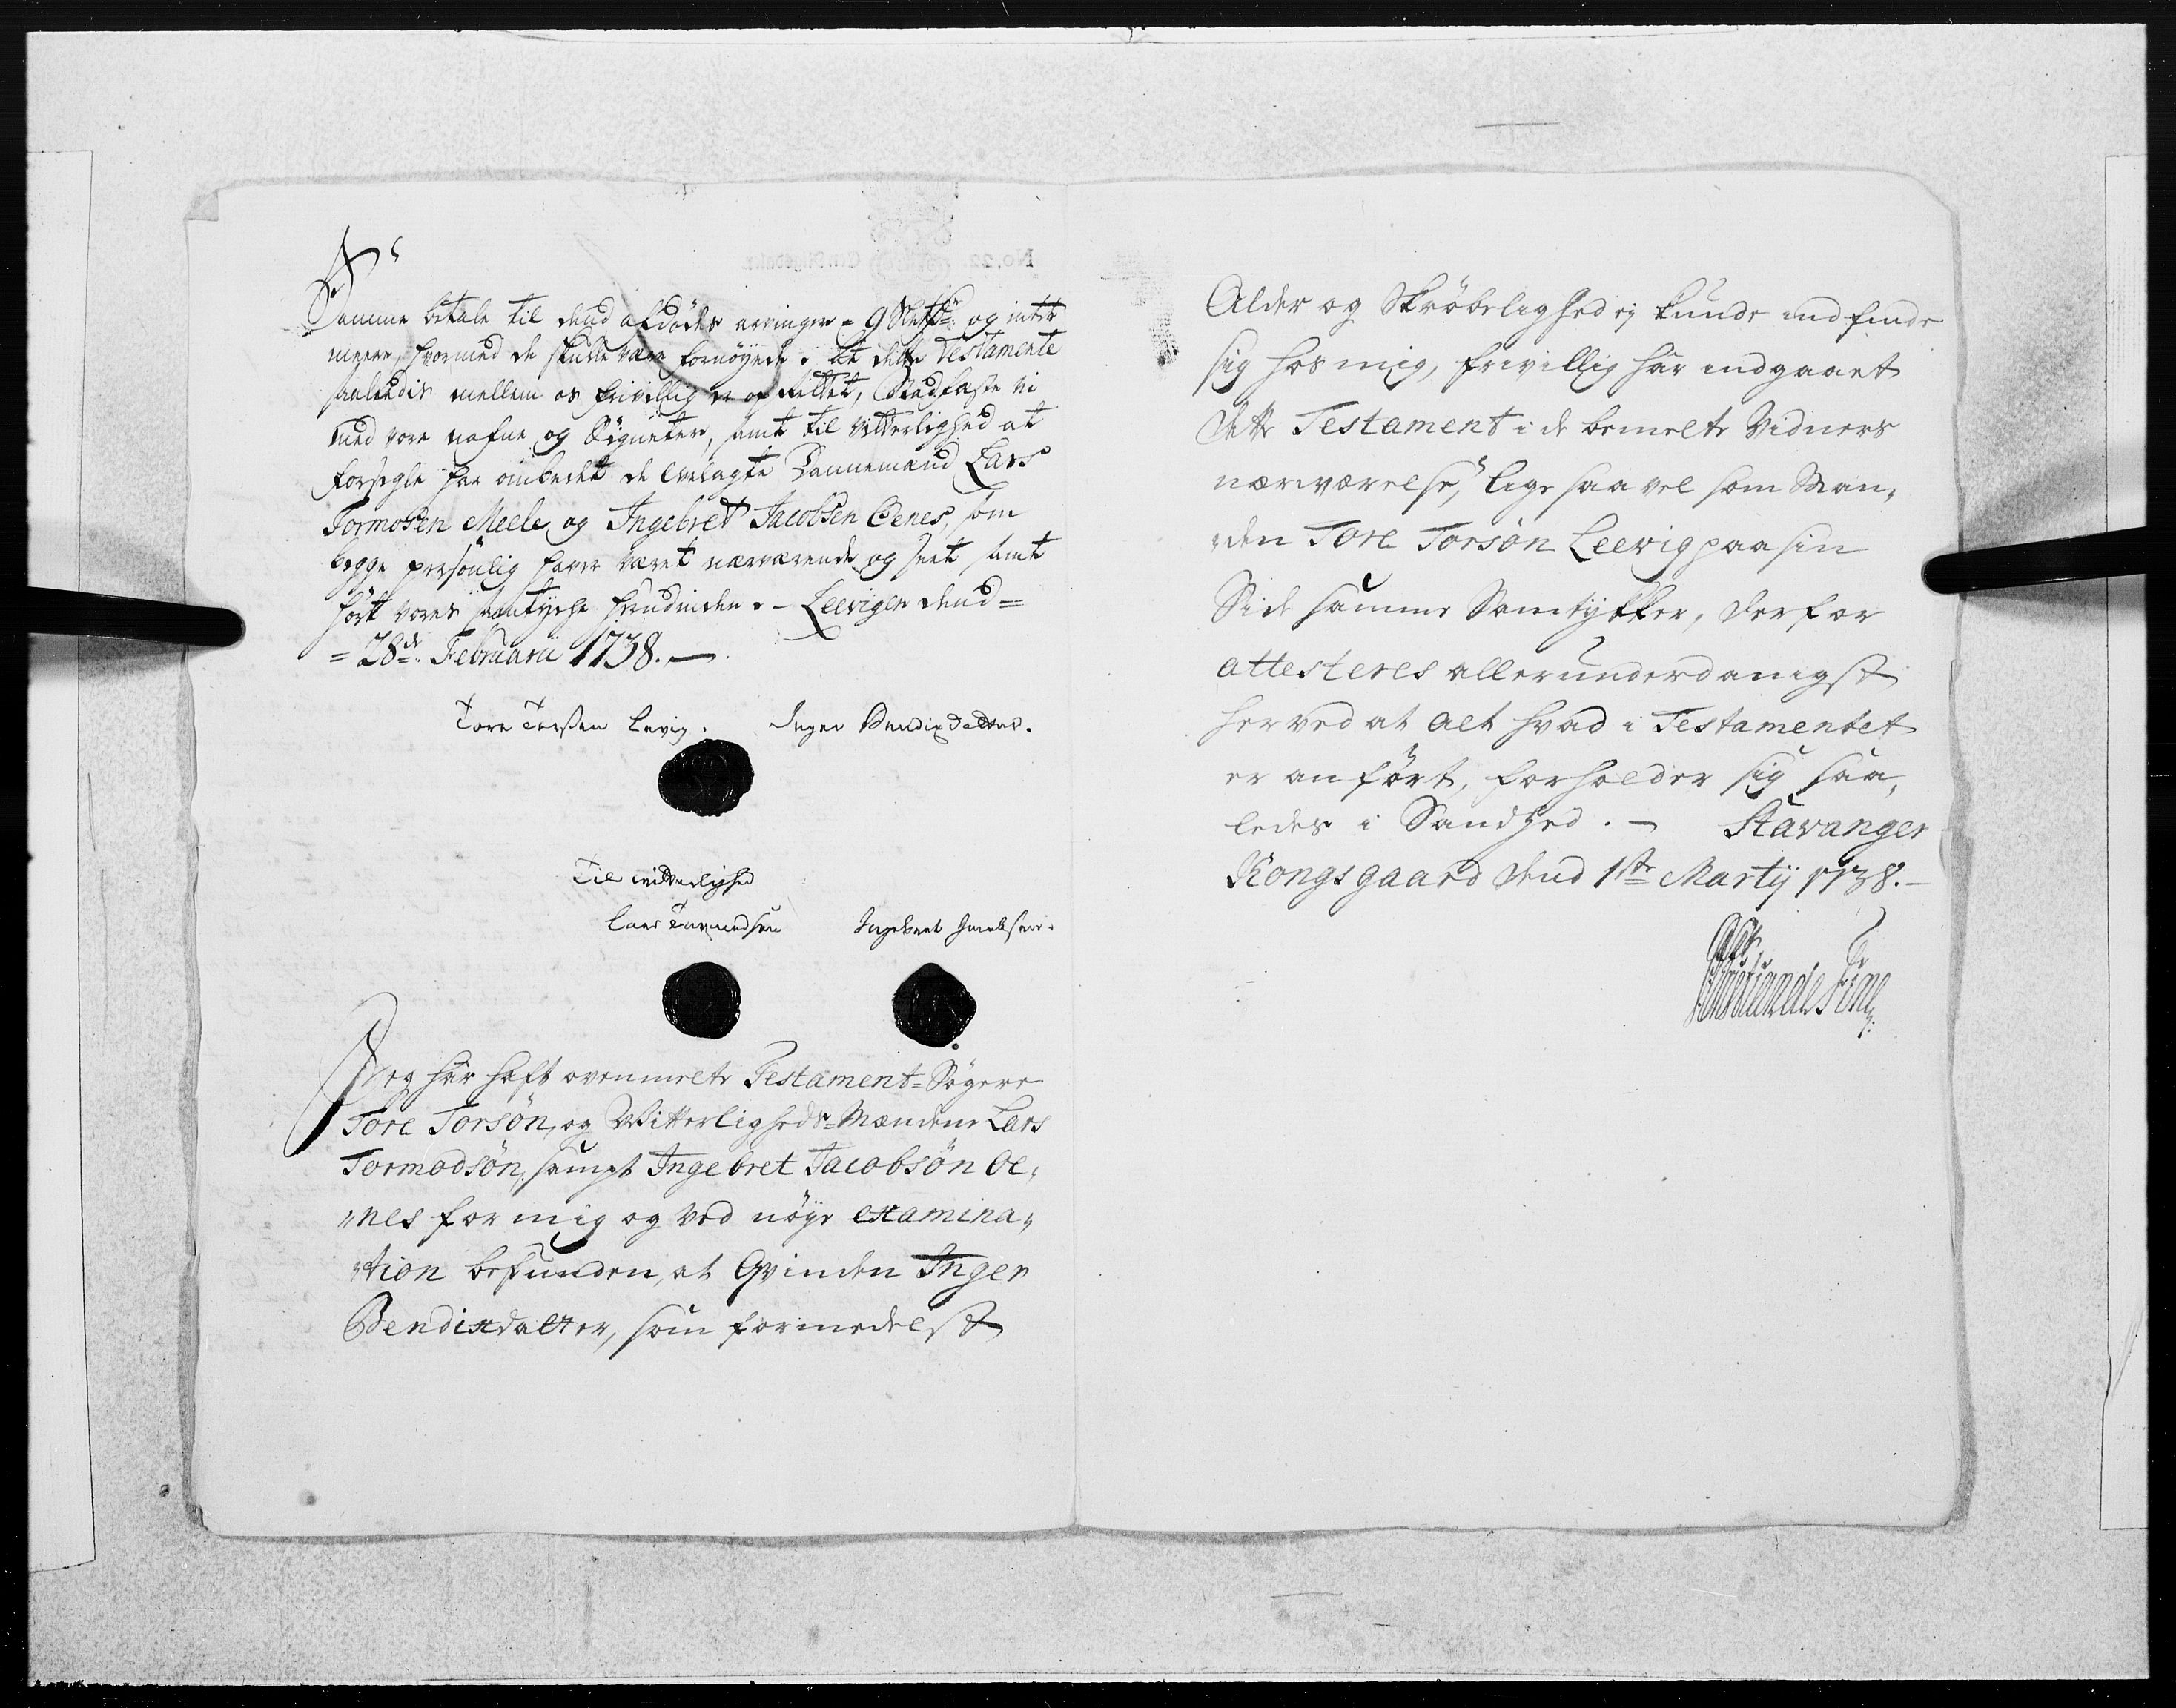 Samme betale til dend afdödes arvinger = 9 Slettdr: og intet
meere, hvormed de skulle være fornöyede. At dette Testamente
saaledis mellem os frivillig er oprettet, Stadfæste vi
med vore nafne og Signeter, samt til Vitterlighed at
forsegle har ombedet de Velagte Dannemænd Lars
Tormosen Meele og Ingebret Jacobsen Oenes, som
begge persönlig haver været nærværende og seet samt
hört vores samtyche herudinden. - Leevigen dend =
= 28de. Februarii 1738. -
Tore Torsen Levig. Inger Bendixdatter.
Til vitterlighed
Lars Tormodsen Ingebret Jacobsen.
Jeg har haft ovenmelte Testament-Sögere
Tore Torsön, og Vitterligheds-Mændene Lars
Tormodsön, sampt Ingebret Jacobsön Oe-
nes for mig og ved nöye examina-
tion befunden, at Qvinden Inger
Bendixdatter, som formedelst
Alder og Skröbelighed ej kunde indfinde
sig hos mig, frivillig har indgaaet
dette Testament i de bemelte Vidners
nærværelse, lige saa vel som Man-
den Tore Torsön Leevig paa sin
Side samme Samtykker, derfor
attesteres allerunderdanigst
herved at alt hvad i Testamentet
er anfört, forholder sig saa-
ledes i Sandhed. - Stavanger
Kongsgaard dend 1ste Martij 1738. -
de Fine